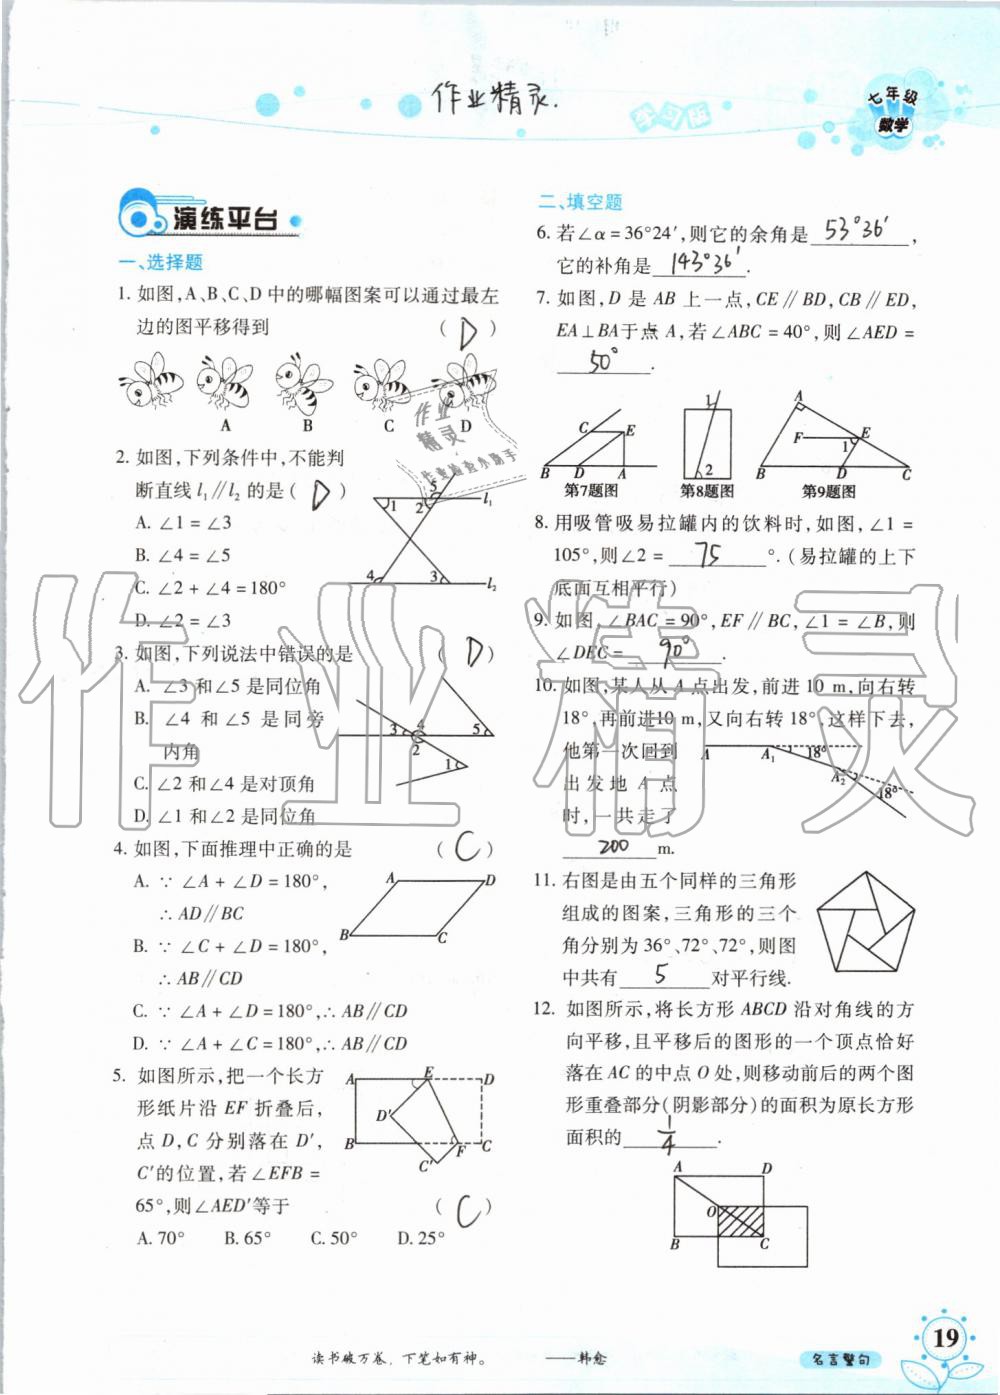 作业精灵.
学习版
七年级
数学
演练平台
一、选择题
1. 如图,A、B、C、D 中的哪幅图案可以通过最左
边的图平移得到 ( D )
A B C D
作业
精灵
作业检查小助手
2. 如图,下列条件中,不能判
断直线 l₁∥l₂ 的是( D )
A. ∠1=∠3
B. ∠4=∠5
C. ∠2+∠4=180°
D. ∠2=∠3
5 1 2 l₁
4 3 l₂
3. 如图,下列说法中错误的是 ( D )
A. ∠3 和∠5 是同位角
B. ∠4 和∠5 是同旁
内角
C. ∠2 和∠4 是对顶角
D. ∠1 和∠2 是同位角
3 4 5
2
1
4. 如图,下面推理中正确的是 ( C )
A. ∵ ∠A+∠D=180°,
∴ AD∥BC
B. ∵ ∠C+∠D=180°,
∴ AB∥CD
C. ∵ ∠A+∠D=180°,∴ AB∥CD
D. ∵ ∠A+∠C=180°,∴ AB∥CD
A D
B C
5. 如图所示,把一个长方
形纸片沿 EF 折叠后,
点 D,C 分别落在 D′,
C′的位置,若∠EFB=
65°,则∠AED′等于 ( C )
A. 70° B. 65° C. 50° D. 25°
A E D
D′
B F C
C′
二、填空题
6. 若∠α=36°24′,则它的余角是 53°36′ ,
它的补角是 143°36′ .
7. 如图,D 是 AB 上一点,CE∥BD,CB∥ED,
EA⊥BA于点 A,若∠ABC=40°,则∠AED=
50° .
C E
B D A
第7题图
1
2
第8题图
A
F E
1
B D C
第9题图
8. 用吸管吸易拉罐内的饮料时,如图,∠1=
105°,则∠2= 75 °.(易拉罐的上下
底面互相平行)
9. 如图,∠BAC=90°,EF∥BC,∠1=∠B,则
∠DEC= 90° .
10. 如图,某人从 A 点出发,前进 10 m,向右转
18°,再前进10 m,又向右转 18°,这样下去,
他第一次回到
出发地 A 点
时,一共走了
200 m.
A A₁ 18°
A₂ 18°
11. 右图是由五个同样的三角形
组成的图案,三角形的三个
角分别为 36°、72°、72°,则图
中共有 5 对平行线.
12. 如图所示,将长方形 ABCD 沿对角线的方
向平移,且平移后的图形的一个顶点恰好
落在 AC 的中点 O 处,则移动前后的两个图
形重叠部分(阴影部分)的面积为原长方形
面积的 1/4 .
A D
O
B C
作业精灵
读书破万卷,下笔如有神。 ——韩愈
名言警句
19